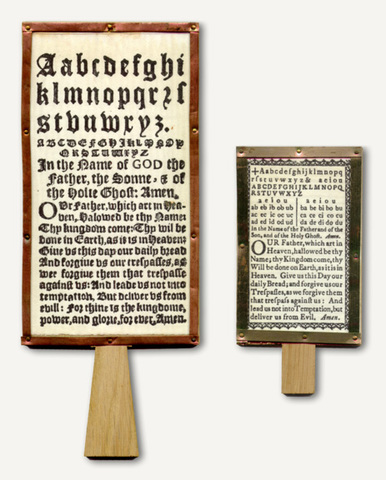 Aabcdefghi
klmnopqrꝛſ
stvuwxyz.
ABCDEFGHIKLMNOP
QRSTUWXYZ
In the Name of GOD the
Father, the Sonne, & of
the Holie Ghost: Amen.
OUr Father, which art in Hea-
ven, Halowed be thy Name:
Thy kingdome come: Thy wil be
done in Earth, as it is in Heaven:
Give us this day our daily bread
And forgive us our trespasses, as
wee forgive them that trespasse
against us: And leade vs not into
temptation, But deliver vs from
evill: For thine is the kingdome,
power, and glorie, for ever, Amen.
+Aabcdefghijklmnopq
rſstuvwxyz& aeiou
ABCDEFGHIJKLMNOPQ
RSTUVWXYZ
a e i o u
a e i o u
ab eb ib ob ub
ba be bi bo bu
ac ec ic oc uc
ca ce ci co cu
ad ed id od ud
da de di do du
In the Name of the Father and of the
Son, and of the Holy Ghoſt. Amen.
OUR Father, which art in
Heaven, hallowed be thy
Name; thy Kingdom come, thy
Will be done on Earth, as it is in
Heaven. Give us this Day our
daily Bread; and forgive us our
Treſpaſſes, as we forgive them
that treſpaſs againſt us: And
lead us not into Temptation, but
deliver us from Evil. Amen.